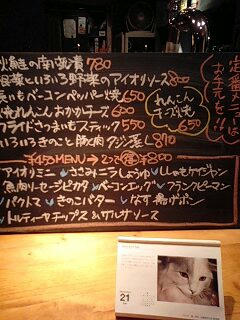 の南蛮漬 780
根菜といろいろ野菜のアイオリソース 800
長いもベーコンペッパー焼 650
れんこんおかかチーズ 650
フライドさつまいもスティック 550
いろいろきのこと豚肉のアジアン 810
れんこんチーズ焼 650
定番メニューはお手元を!!
MENU → 2つで 800
アイオリミニ ささみニラしょうゆ ししゃもケイジャン
魚肉ソーセージピカタ ベーコンエッグ フランクピーマン
パクトマ きのこバター なす揚げポン
トルティーヤチップス&サルサソース
21